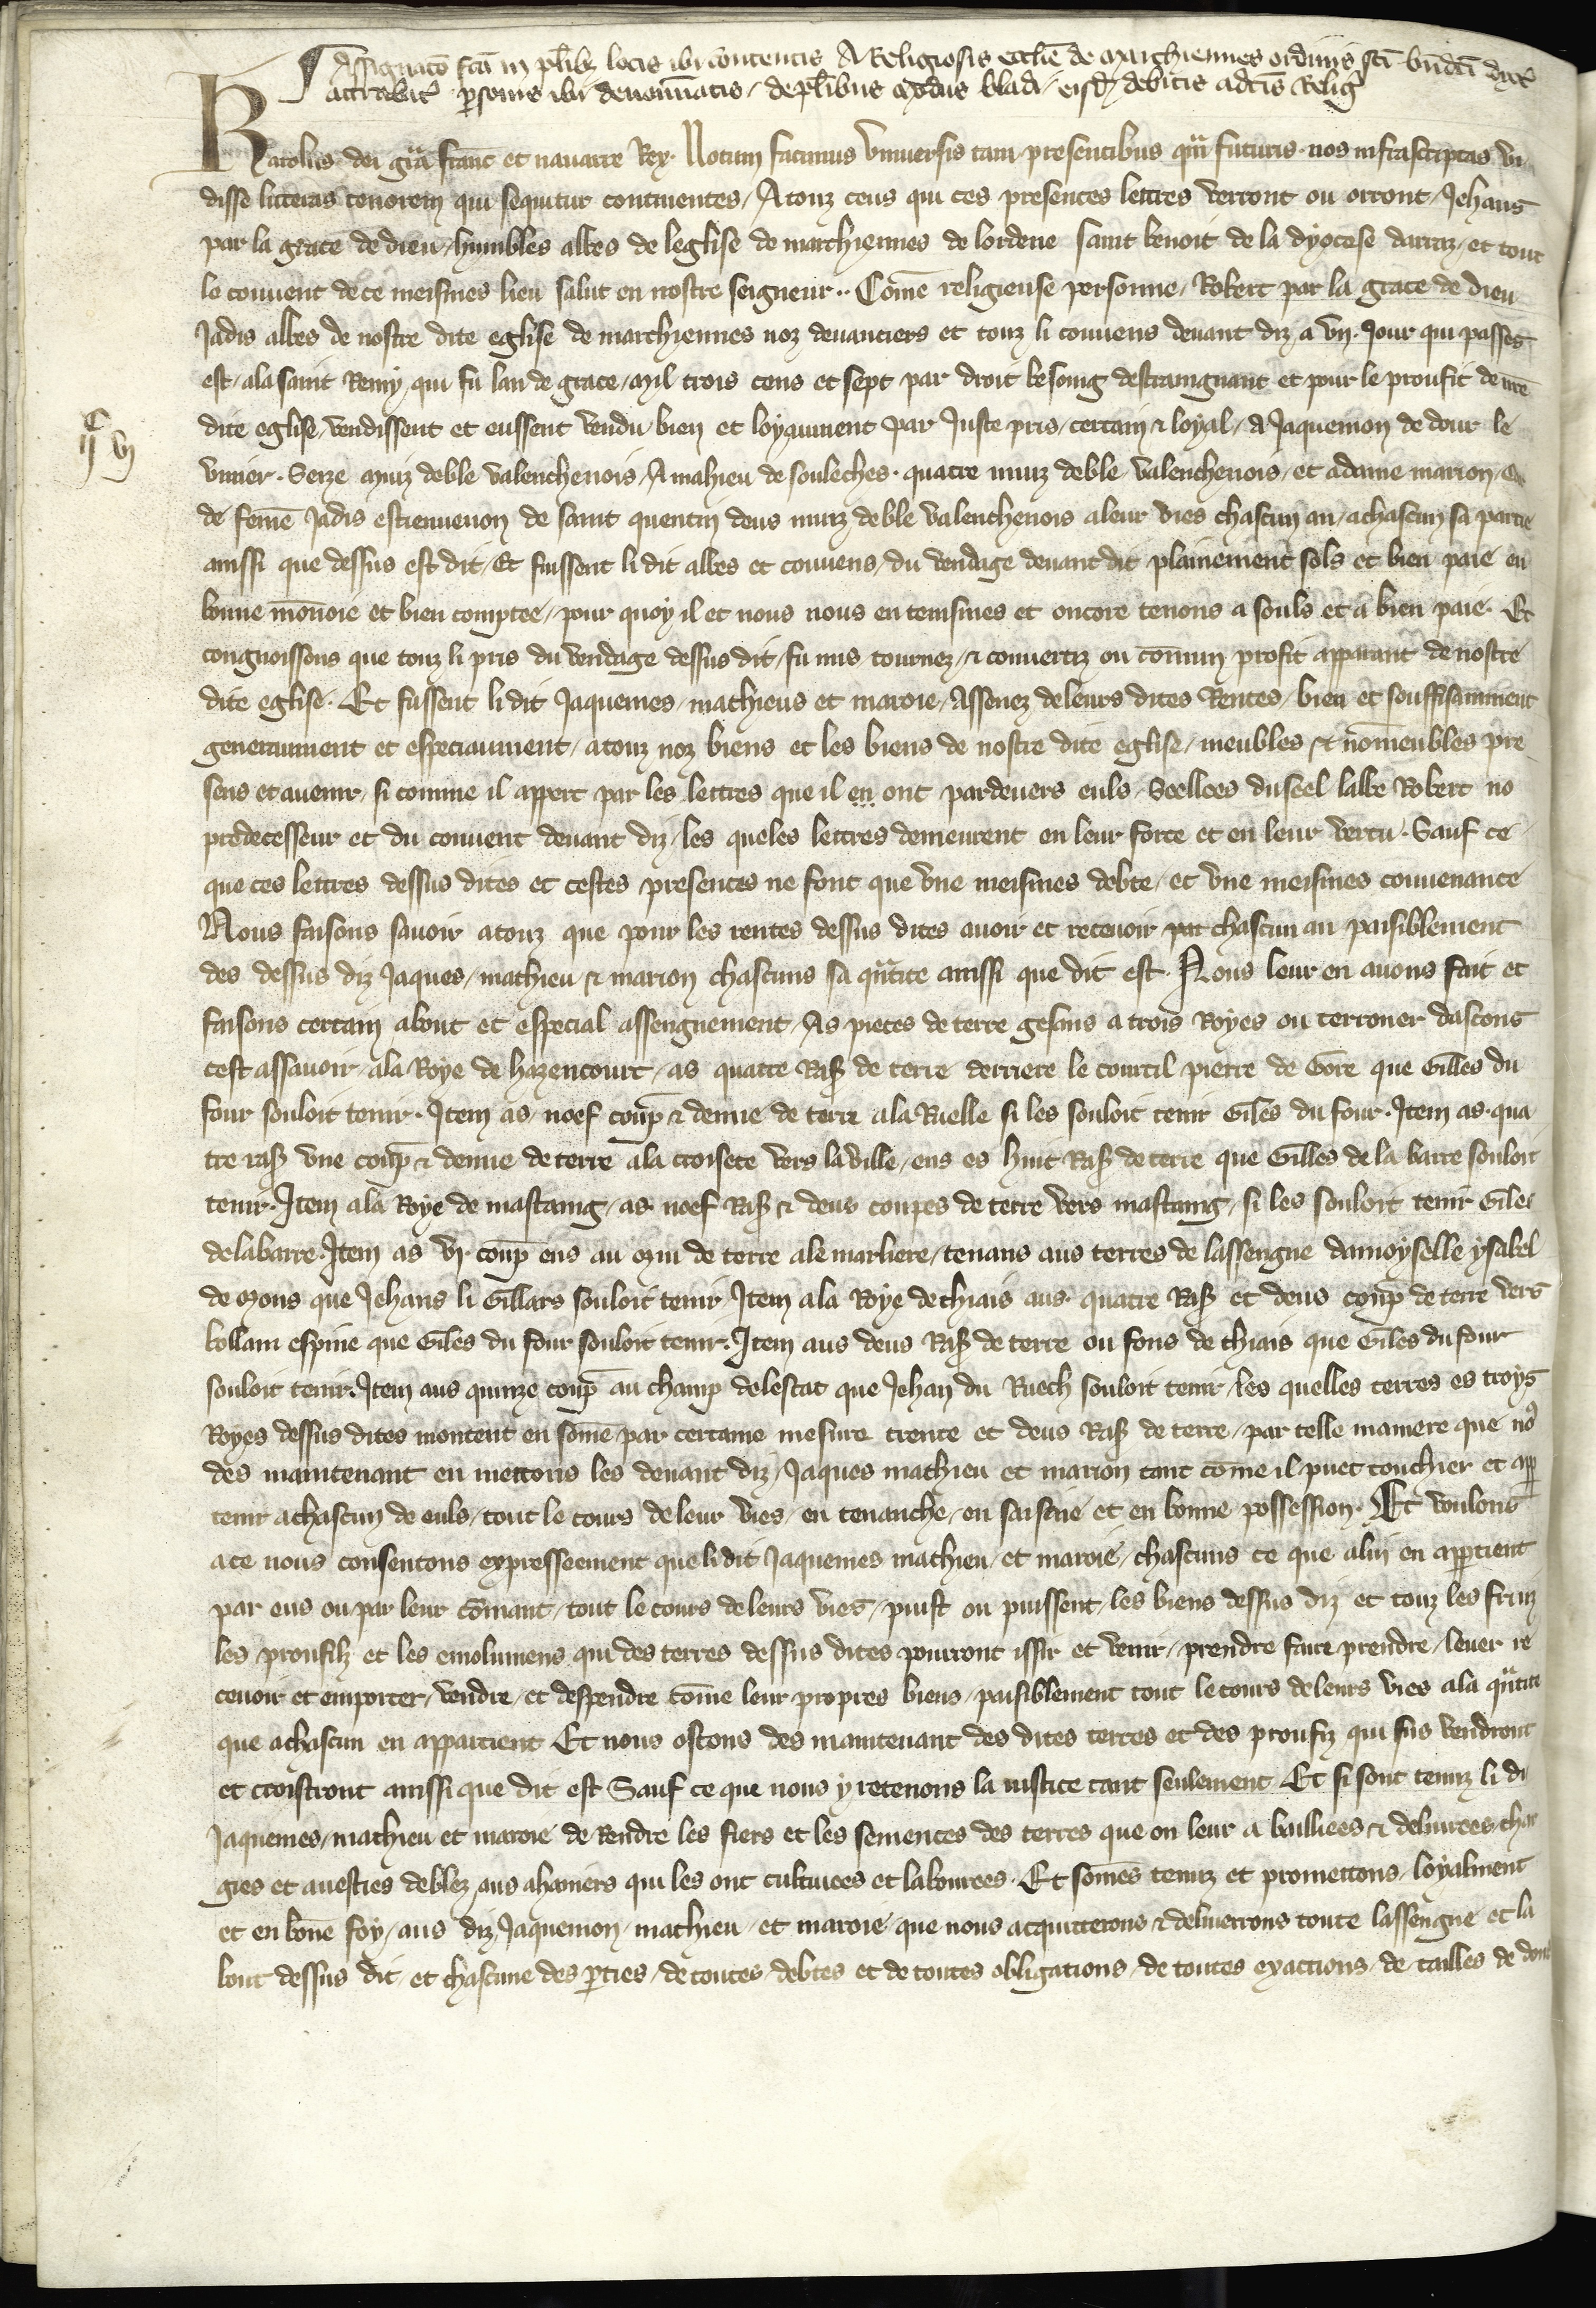 Assignatō fc̄a in pl̄ib locis ibi contentis A Religiosis eccl̄ie de marchiennes ordinis sc̄i bn̄dc̄i dyoc̄
attrebat̄ personis ibi denominatis / de pl̄ibus modiis bladi / eisd debitis a dc̄is Reliḡ
Karolus dei gr̄a franc̄ et nauarre Rex. Notum facimus vniuersis tam presentibus qm̄ futuris. nos infrascriptas vi
disse litteras tenorem qui sequitur continentes / A touz ceus qui ces presentes lettres verront ou orront / Jehans
par la grace de dieu / humbles abbes de leglise de marchiennes de lordene saint benoit de la dyocese darraz / et tout
le couuent de ce meismes lieu salut en nostre seigneur.. Com̄e religieuse personne / Robert par la grace de dieu
Jadis abbes de nostre dite eglise de marchiennes noz deuanciers et touz li conuens deuant diz a vn. Jour qui passes
est / a la saint Remy / qui fu lan de grace / mil trois cens et sept par droit besoing destraingnant et pour le proufit de nr̄e
dite eglise / vendissent et eussent vendu bien et loyaument par Juste pris / certain & loyal / a Jaquemon de dour le
vinier. Seze muiz de ble valenchenois / A mahieu de souleches. quatre muiz de ble valenchenois / et a dame marion /
de fem̄e Jadis estieuenon de saint quentin deus muiz de ble valenchenois a leur vies chascun an / a chascun sa partie
ainssi que dessus est dit / Et fuissent li dit abbes et conuens / du vendage deuant dit plainement sols et bien paie en
bonne mōnoie et bien comptee / pour quoy il et nous nous en tenismes et oncore tenons a souls et a bien paie. Et
congnoissons que touz li pris du vendage dessus dit / fu mis tournez / & conuertiz ou com̄un profit apparant de nostre
dite eglise. Et fussent li dit Jaquemes / mathieus et maroie / Assenez de leurs dites Rentes / bien et souffisamment
generaument et especiaument / a touz noz biens et les biens de nostre dite eglise / meubles & nōmeubles pre
sens et auenir / si comme il appert par les lettres que il en ont pardeuers euls / Seellees du seel labbe Robert no
predecesseur et du conuent deuant diz / les queles lettres demeurent en leur force et en leur vertu. Sauf ce
que ces lettres dessus dites et cestes presentes ne font que vne meismes debte / et vne meismes conuenance
Nous faisons sauoir a touz que pour les rentes dessus dites auoir et receuoir par chascun an paisiblement
des dessus diz Jaques / mathieu & marion chascuns sa qūtite ainssi que dit est. Nous leur en auons fait et
faisons certain about et especial assengnement / As pieces de terre gesans a trois Royes ou terroner dascons
cest assauoir / a la Roye de hazencourt / as quatre Ras de terre derriere le courtil pierre de Gore que Gilles du
four souloit tenir. Item as noef coup̄ & demie de terre a la Ruelle si les souloit tenir Giles du four. Item as qua
tre ras vne coup̄ & demie de terre a la croisete vers la ville / ens es huit Ras de terre que Gilles de la barre souloit
tenir. Item a la Roye de mastaing / as noef Ras & deus coupes de terre vers mastaing / si les souloit tenir Giles
de la barre. Item as vj coup̄ ens au mui de terre a le marliere / tenans aus terres de lassengne damoyselle ysabel
de mons que Jehans li Gillars souloit tenir / Item a la Roye de chiais aus quatre Ras et deus coup̄ de terre vers
bollain espine que Giles du four souloit tenir. Item aus deus Ras de terre ou fons de chiais que Giles du four
souloit tenir. Item aus quinze coup̄ au champ de lestat que Jehan du Ruech souloit tenir / les quelles terres es troys
Royes dessus dites montent en som̄e par certaine mesure trente et deus Ras de terre / par telle maniere que no9
des maintenant en mettons les deuant diz / Jaques mathieu et marion tant com̄e il puet touchier et app
tenir a chascun de euls / tout le cours de leur vies / en tenanche / en saisine et en bonne possession. Et voulons
a ce nous consentons expresseement que li dit Jaquemes mathieu / et maroie / chascuns ce que a lui en appertient
par eus ou par leur com̄ant / tout le cours de leurs vies / puist ou puissent / les biens dessus diz et touz les fruiz
les proufilz et les emolumens qui des terres dessus dites pourront issir et venir / prendre faire prendre / leuer re
ceuoir et emporter / vendre / et despendre com̄e leur propres biens / paisiblement tout le cours de leurs vies a la qūtite
que a chascun en appartient Et nous ostons des maintenant des dites terres et des proufiz qui sus vendront
et croistront ainssi que dit est Sauf ce que nous y retenons la iustice tant seulement. Et si sont tenuz li di
Jaquemes / mathieu et maroie de Rendre les fiers et les semences des terres que on leur a bailliees & deliurees char
gies et auesties de blez / aus ahaniers qui les ont cultiuees et labourees. Et som̄es tenuz et promettons / loyalment
et en bōne foy / aus diz Jaquemon / mathieu / et maroie que nous acquitterons & deliuerrons toute lassengne et la
bout dessus dit / et chascune des p̄ties / de toutes debtes et de toutes obligations / de toutes exactions / de tailles de dons